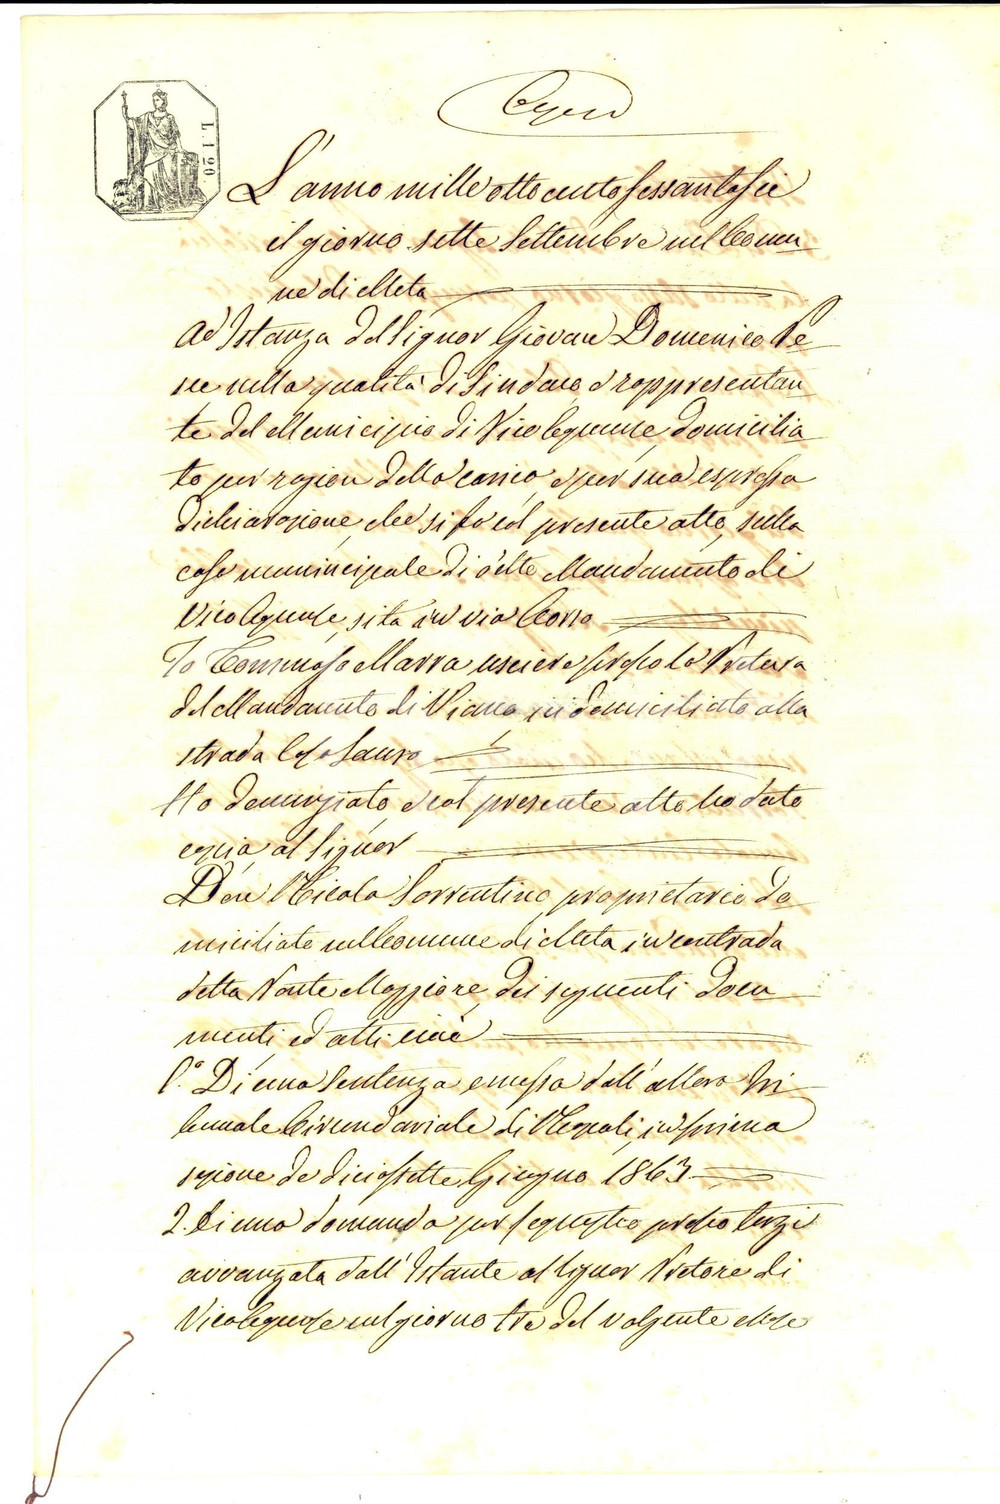 Copia
L. 1 20.
L'anno mille ottocento sessantasei
il giorno sette Settembre nel Comu
ne di Meta
Ad Istanza del Signor Giovan Domenico
nella qualità di Sindaco e rappresentan
te del Municipio di Vico Equense, domicilia
to per ragion della carica, e per sua espressa
dichiarazione, che si fa col presente atto, sulla
casa municipale di detto Mandamento di
Vico Equense, sita in via Corso
Io Tommaso Marra usciere presso la Pretura
del Mandamento di Piano ivi domiciliato alla
strada Casa Lauro
Ho denunziato, e col presente atto ho dato
copia, al Signor
Don Nicola Sorrentino, proprietario do
miciliato nel Comune di Meta in contrada
detta Ponte Maggiore, dei seguenti docu
menti ed atti cioè
1.° Di una Sentenza emessa dall'allora Tri
bunale Circondariale di Napoli, in prima
sezione de diciassette Giugno 1863
2. Di una domanda per sequestro presso terzi
avvanzata dall'Istante al Signor Pretore di
Vico Equense nel giorno tre del volgente Mese